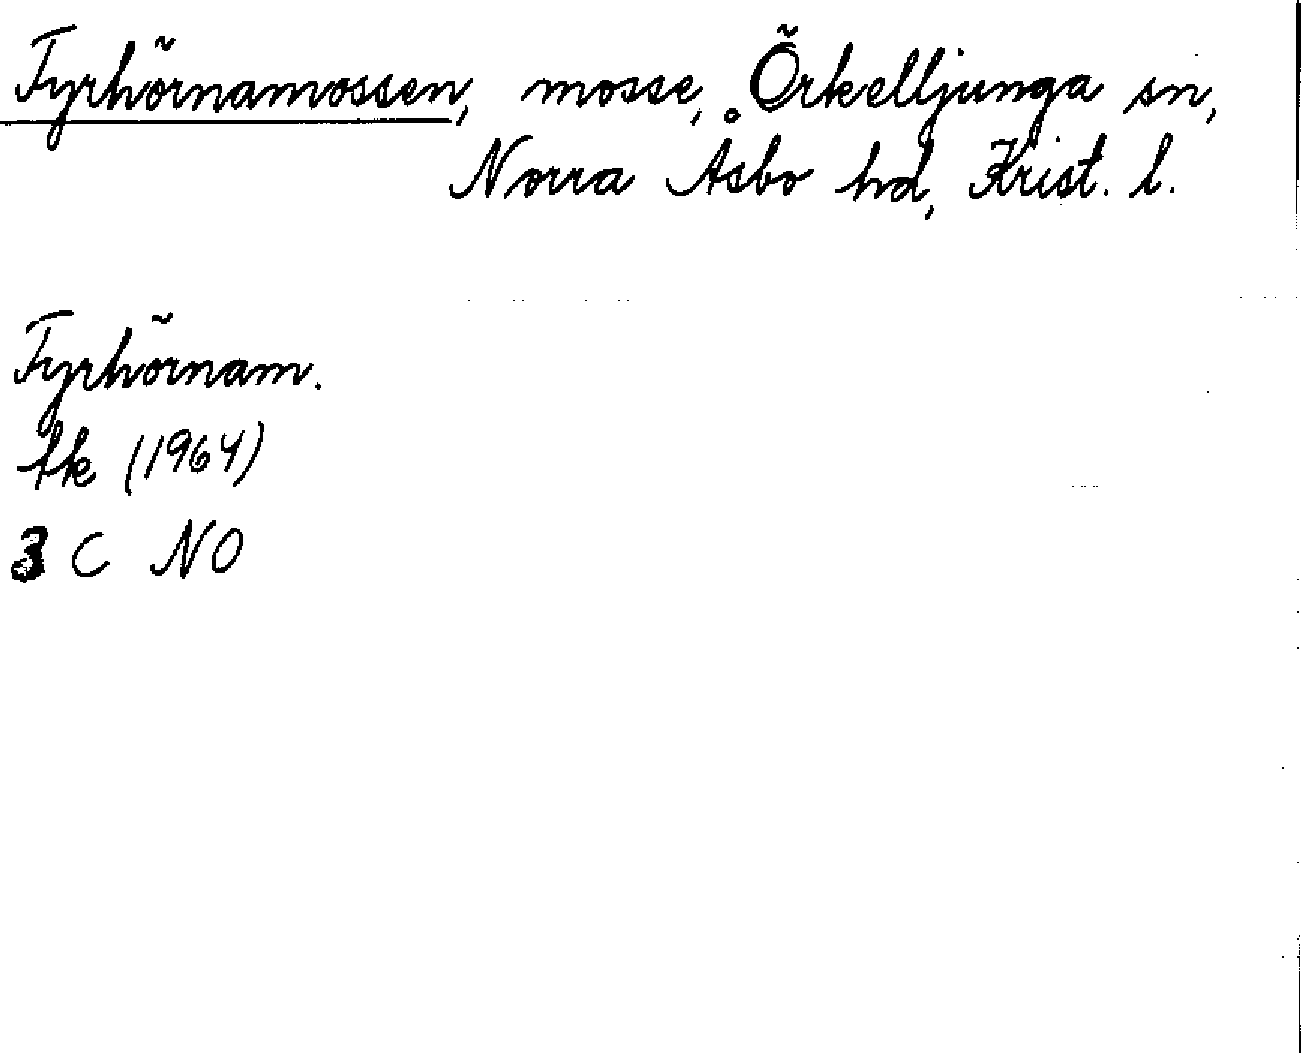 Fyrhörnamossen, mosse, Örkelljunga sn,
Norra Åsbo hd, Krist. l.
Fyrhörnam.
tk (1964)
3 C NO